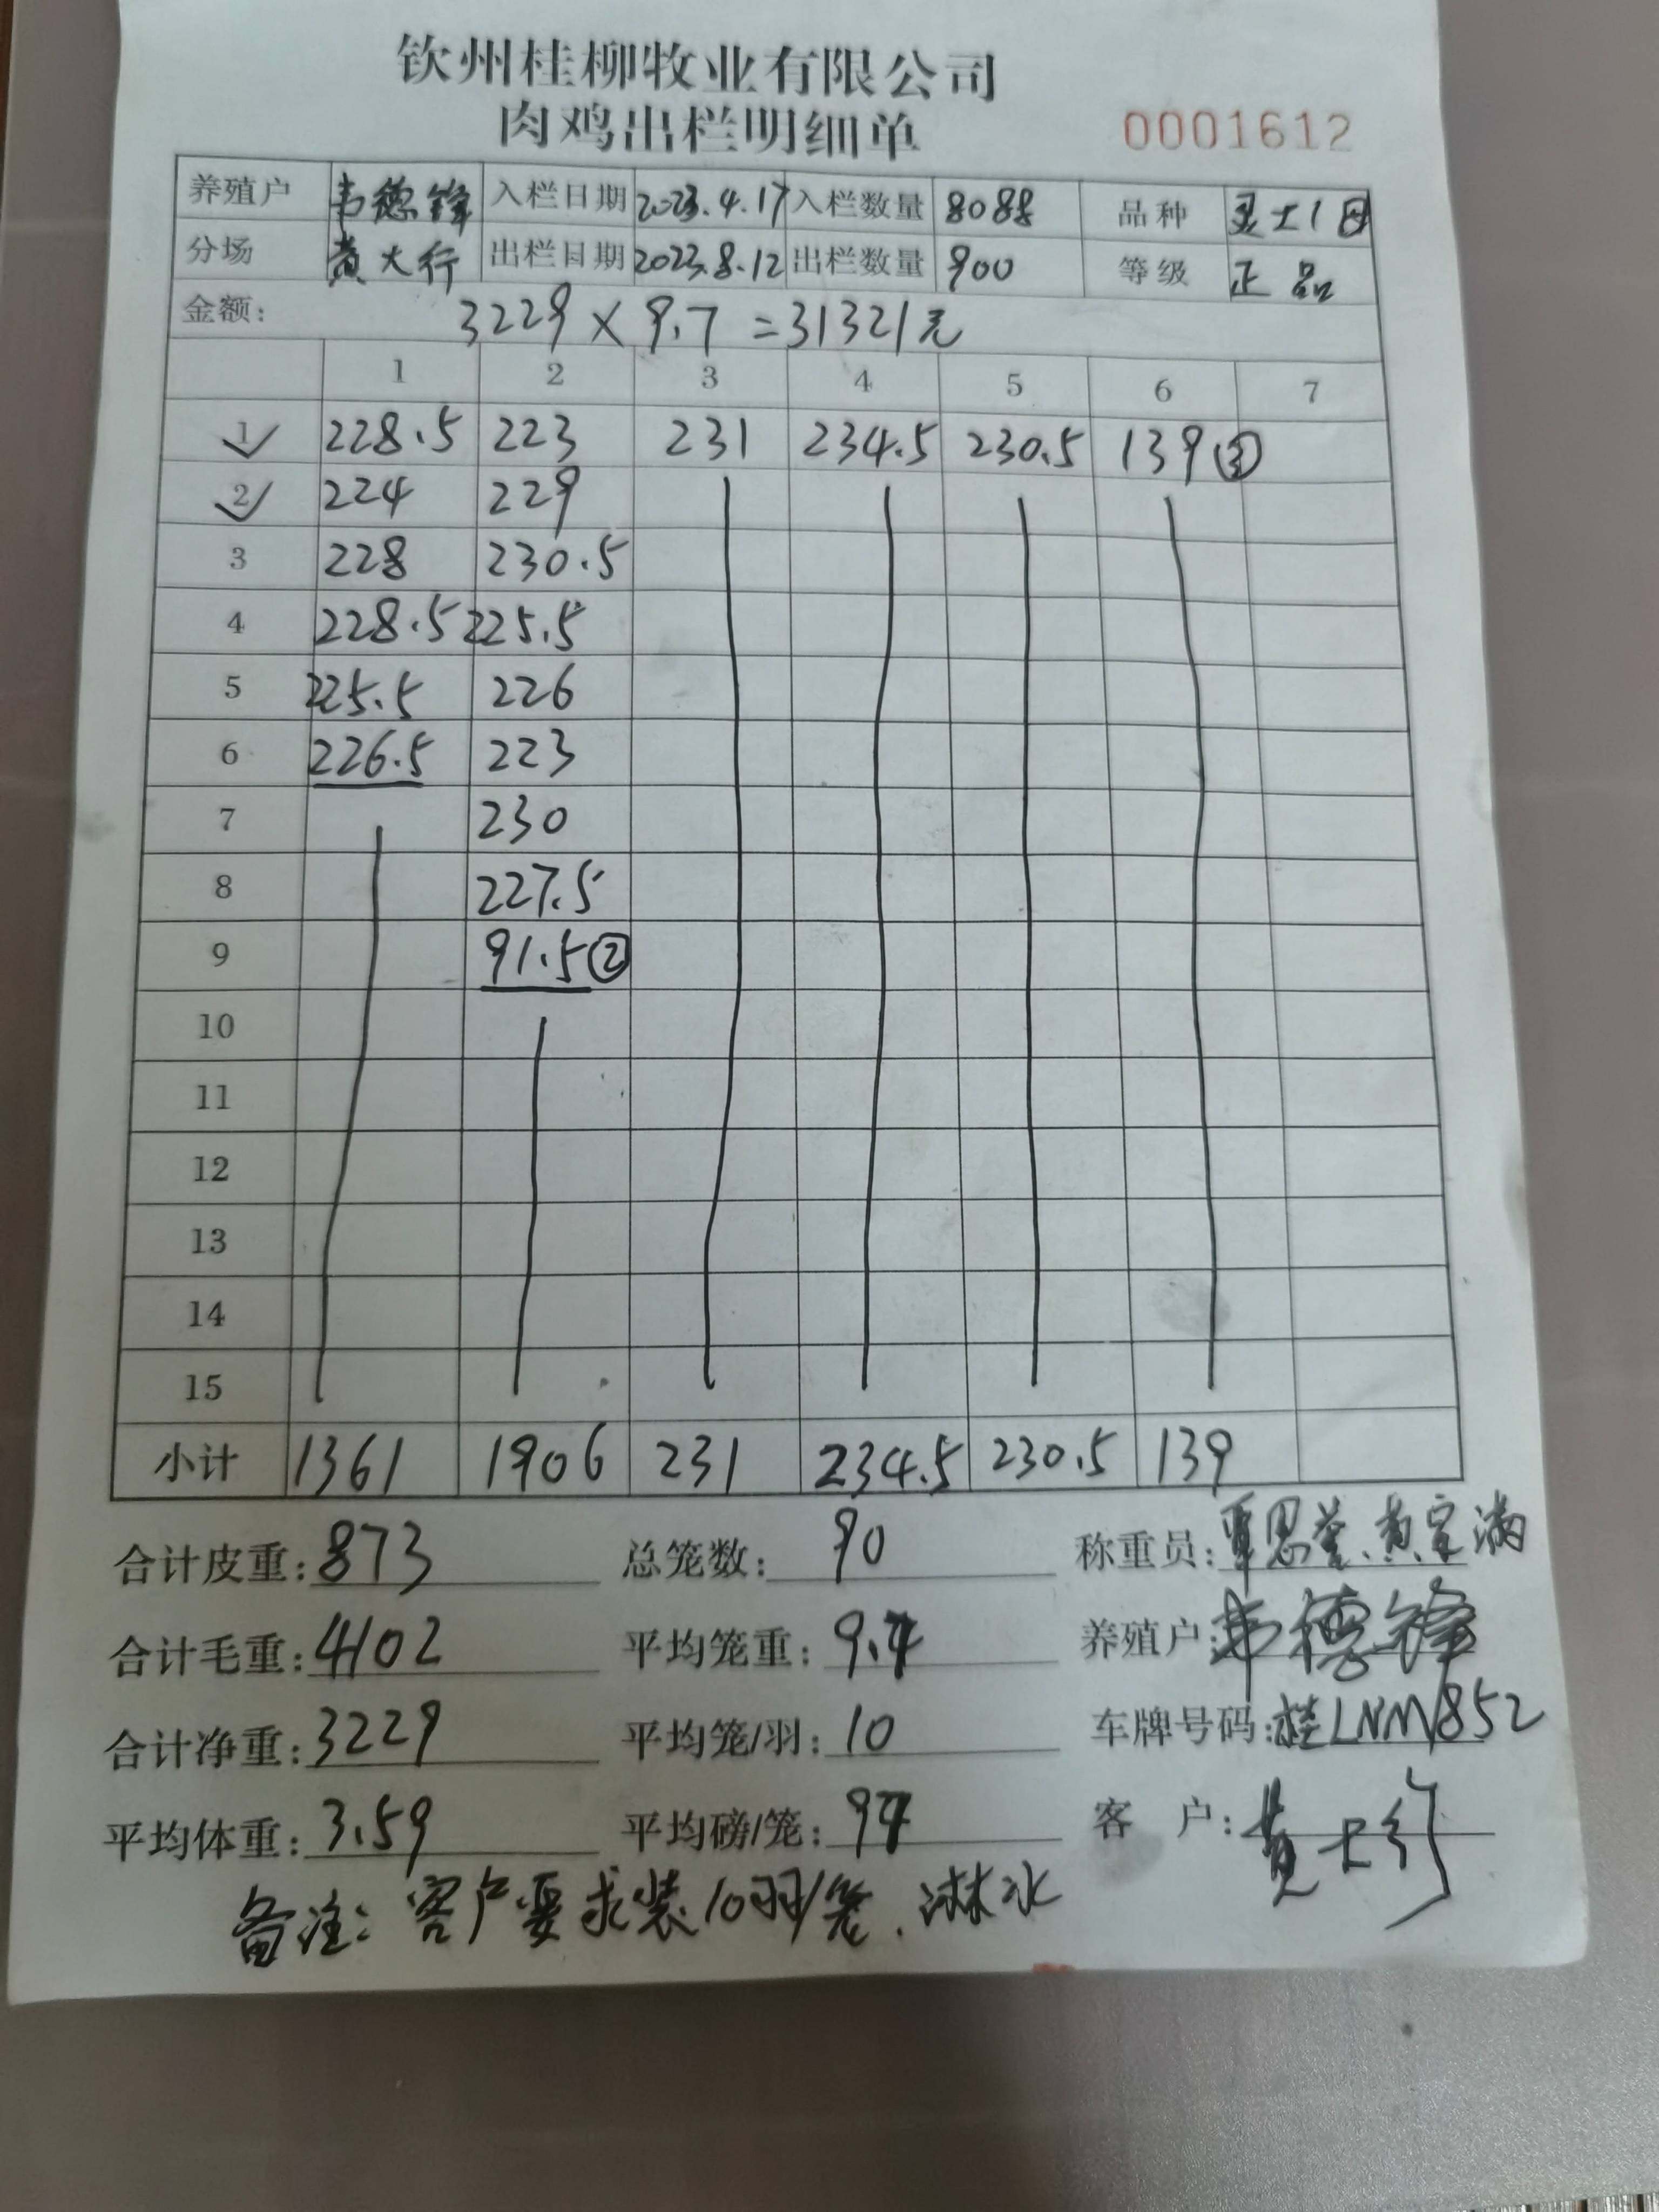 钦州桂柳牧业有限公司
肉鸡出栏明细单 0001612
养殖户 韦德锋 入栏日期 2023.4.17 入栏数量 8088 品种 灵土1母
分场 黄大行 出栏日期 2023.8.12 出栏数量 900 等级 正品
金额: 3229×9.7=31321元
1 2 3 4 5 6 7
1 228.5 223 231 234.5 230.5 139③
2 224 229
3 228 230.5
4 228.5 225.5
5 225.5 226
6 226.5 223
7 230
8 227.5
9 91.5②
10
11
12
13
14
15
小计 1361 1906 231 234.5 230.5 139
合计皮重: 873 总笼数: 90 称重员: 覃思 、黄 满
合计毛重: 4102 平均笼重: 9.7 养殖户: 韦德锋
合计净重: 3229 平均笼/羽: 10 车牌号码: 桂LNM852
平均体重: 3.59 平均磅/笼: 97 客户:
备注: 客户要求装10羽/笼.淋水